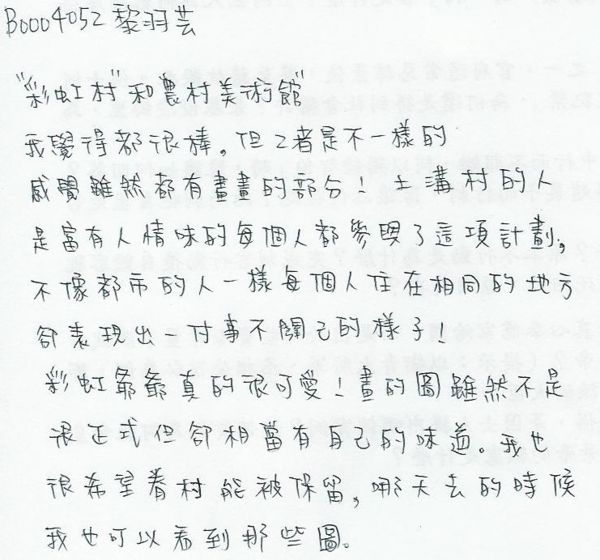 B0004052 黎羽芸
"彩虹村"和農村美術館"
我覺得都很棒。但2者是不一樣的
感覺雖然都有畫畫的部分！土溝村的人
是富有人情味的每個人都參與了這項計劃,
不像都市的人一樣每個人住在相同的地方
卻表現出一付事不關己的樣子！
彩虹爺爺真的很可愛！畫的圖雖然不是
很正式但卻相當有自己的味道。我也
很希望眷村能被保留,哪天去的時候
我也可以看到那些圖。